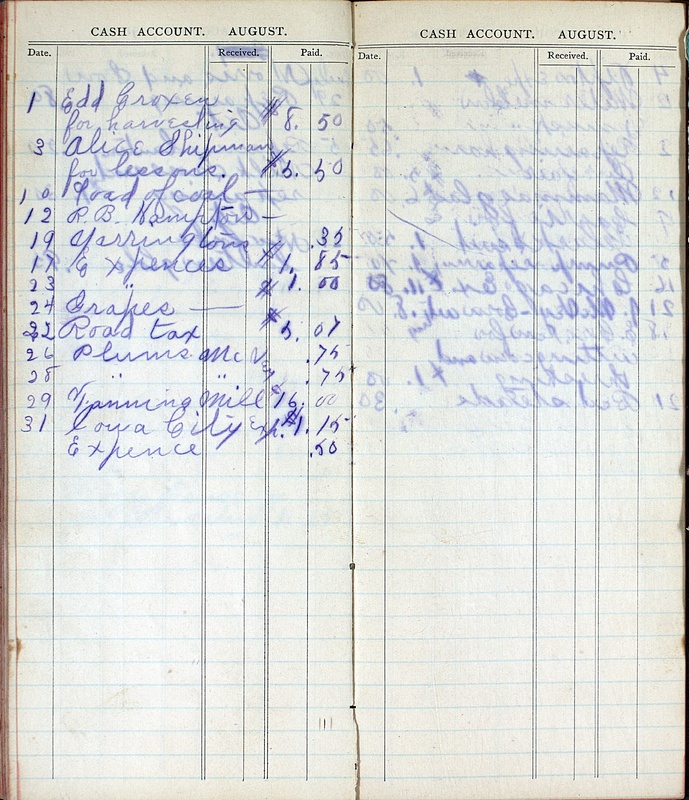 CASH ACCOUNT. AUGUST.
Date. Received. Paid.
1 Edd Croxen
for harvesting $8. 50
3 Alice Shipman
for lessons. $5. 50
10 Load of coal —
12 P.B. Hampton —
19 Yarringtons .35
17 Expences $1. 85
23 " $1. 00
24 Grapes —
22 Road tax $5. 07
26 Plums .75
28 " " .75
29 Fanning Mill $16. 00
31 Iowa City Exp. $1. 15
Expence .50
CASH ACCOUNT. AUGUST.
Date. Received. Paid.